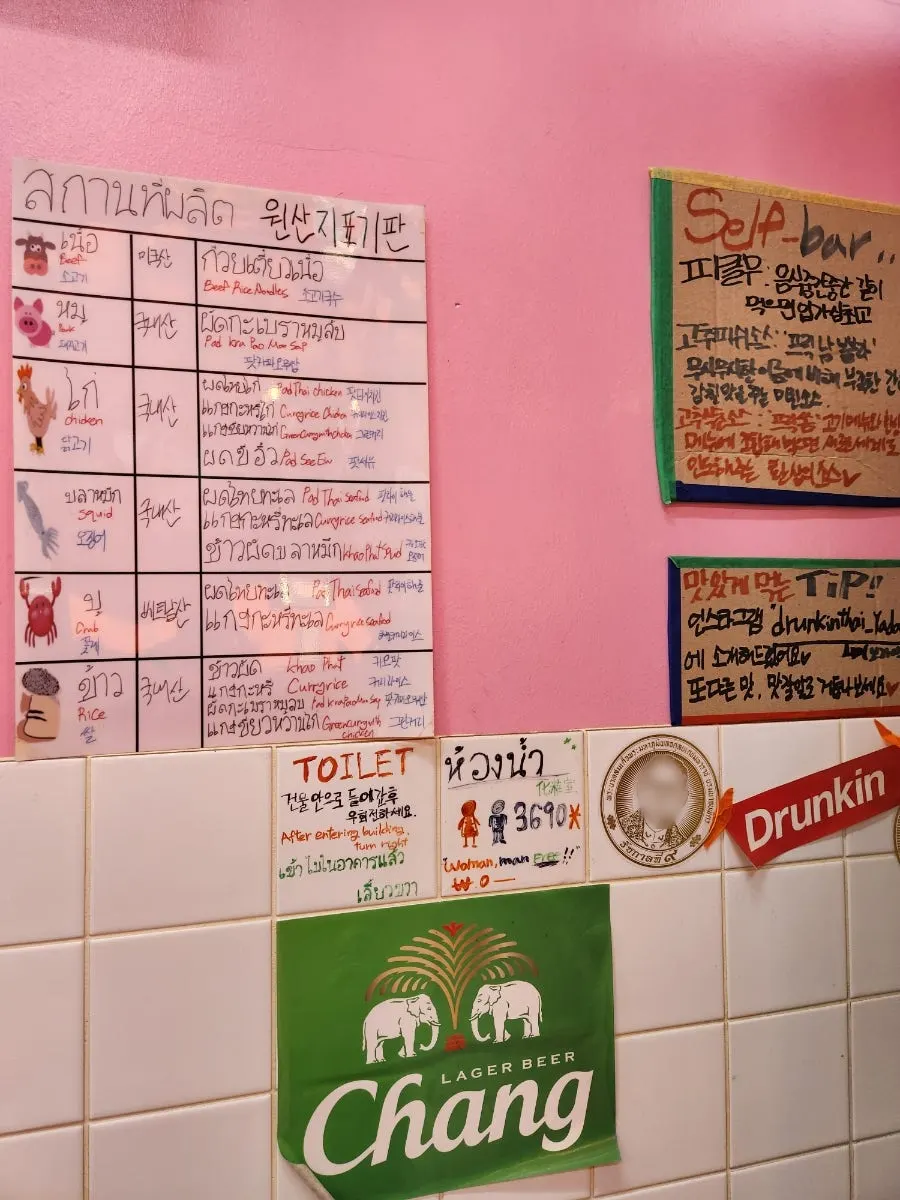 สถานที่ผลิต 원산지표기판
เนื้อ
Beef
소고기
미국산
ก๋วยเตี๋ยวเนื้อ
Beef Rice Noodles 소고기국수
หมู
Pork
돼지고기
국내산
ผัดกะเพราหมูสับ
Pad kra Pao Moo Sap
팟카파오무쌉
ไก่
chicken
닭고기
국내산
ผัดไทยไก่ Pad Thai chicken
แกงกะหรี่ไก่ Curryrice Chicken
แกงเขียวหวานไก่ Green Curry with chicken 그린커리
ผัดซีอิ๊ว Pad See Ew 팟씨유
ปลาหมึก
squid
오징어
국내산
ผัดไทยทะเล Pad Thai Seafood 팟타이해물
แกงกะหรี่ทะเล Curryrice seafood
ข้าวผัดปลาหมึก khao Phat Squid
ปู
Crab
꽃게
베트남산
ผัดไทยทะเล Pad Thai Seafood 팟타이해물
แกงกะหรี่ทะเล Curryrice seafood
ข้าว
Rice
쌀
국내산
ข้าวผัด khao Phat 카오팟
แกงกะหรี่ Curryrice 커리라이스
ผัดกะเพราหมูสับ Pad kra Pao Moo Sap 팟카파오무쌉
แกงเขียวหวานไก่ Green Curry with chicken 그린커리
Self-bar..
피클무: 음식 같이
먹으면 업가심최고
고추피쉬소스: '프릭남쁠라'
감칠맛을 주는 만원소스
고추식초소스:
맛있게 먹는 TiP!!
인스타그램 "drunkinthai_Yada
에 소개해드렸어요♥
또다른 맛, 맛깔알로 거듭나보세요♥
TOILET
건물안으로 들어간후
우회전하세요.
After entering building,
turn right
เข้าไปในอาคารแล้ว
เลี้ยวขวา
ห้องน้ำ
化粧室
3690*
Woman, man FREE!!"
₩ 0 —
รัชกาลที่ ๙
Drunkin
LAGER BEER
Chang